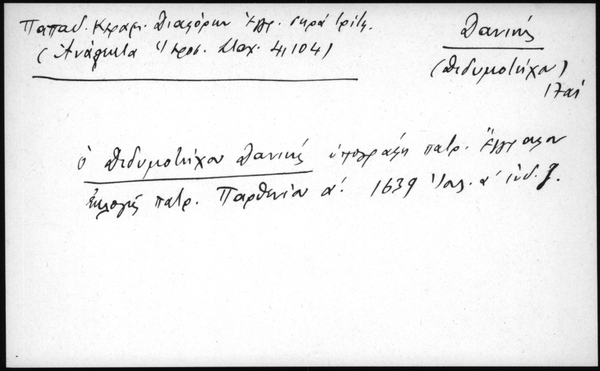 Παπαδ. Κεραμ. Διαφόρων Ἑλλ. σειρὰ τρίτ.
(Ἀνάλεκτα Ἱερος. Σταχ. 4, 104)
Δανιήλ
(Διδυμοτείχου)
17αι
ὁ Διδυμοτείχου Δανιήλ ὑπογράφει πατρ. ἔγγραφον
ἐκλογῆς πατρ. Παρθενίου α΄. 1639 Ἰουλ. α΄ ἰνδ. ζ.